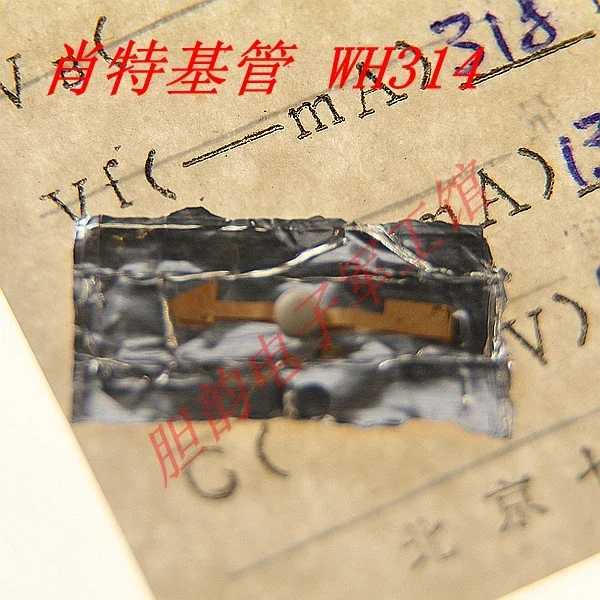 肖特基管 WH314
318
Vf(—mA)
13
mA)
V)
C(
北京
胆韵电子军工馆